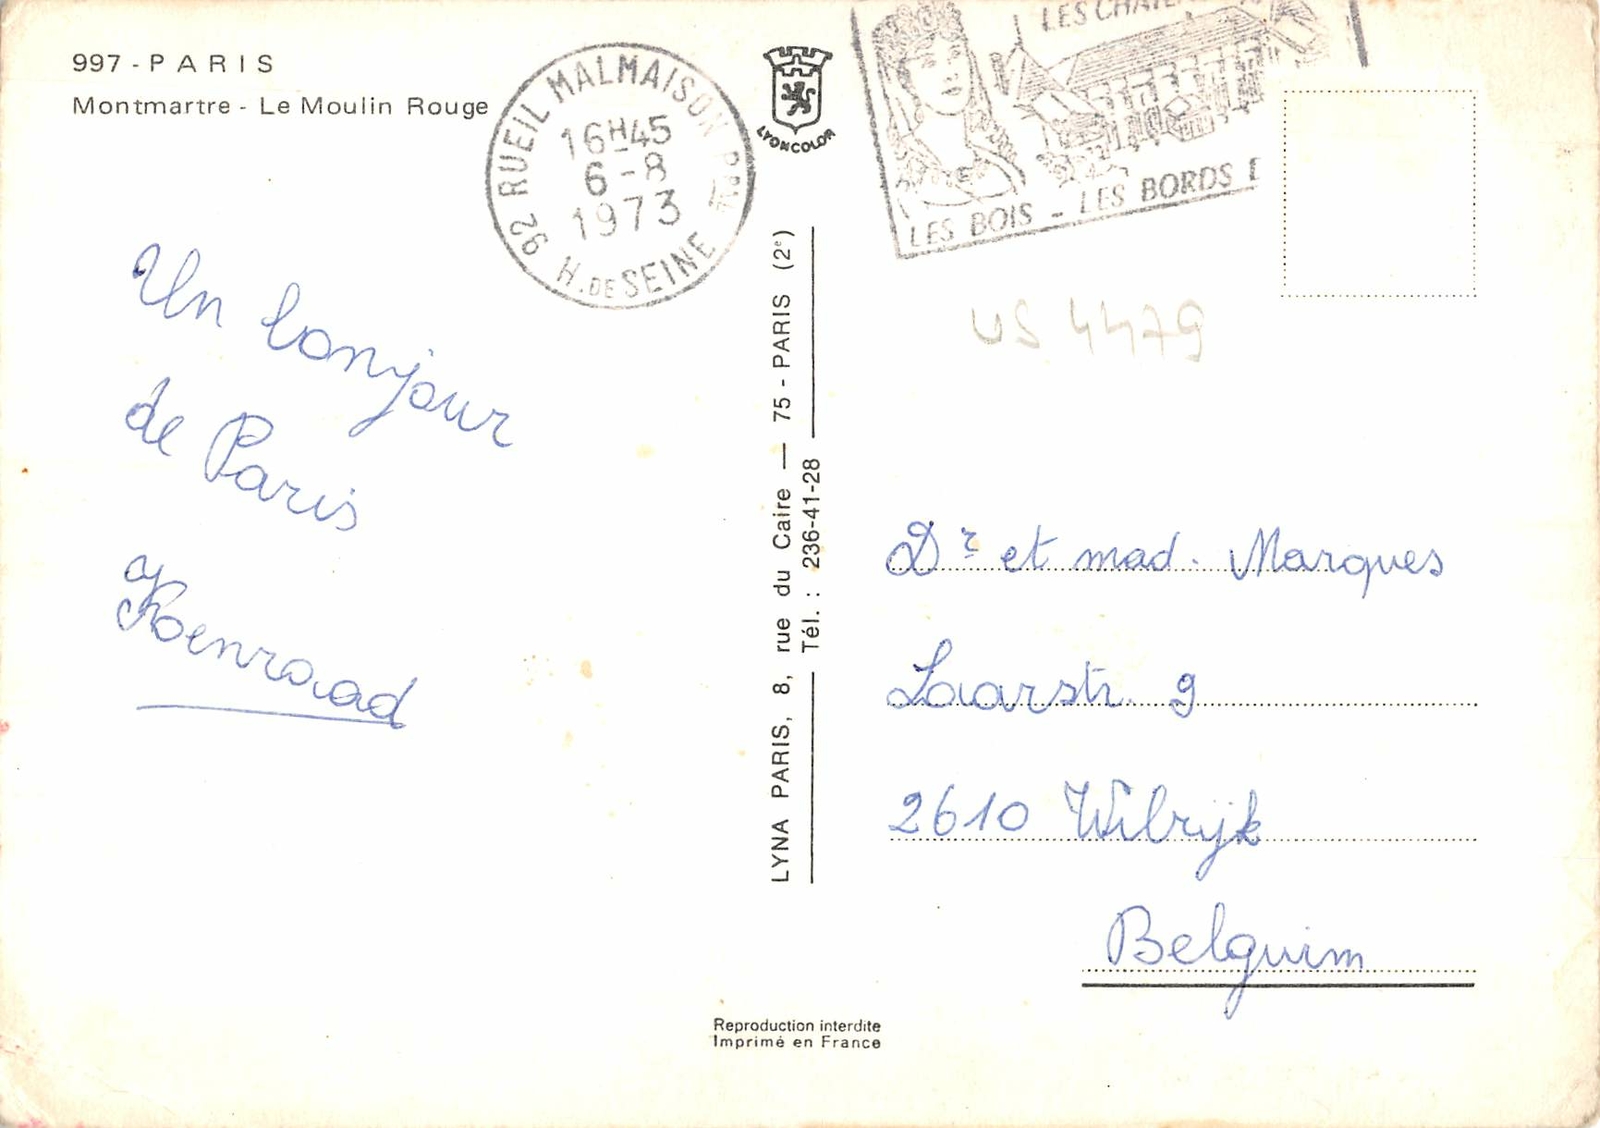 997 - PARIS
Montmartre - Le Moulin Rouge
92 RUEIL MALMAISON PPAL
16H45
6-8
1973
H. DE SEINE
LYONCOLOR
LES
LES BOIS - LES BORDS
US 4479
Un bonjour
de Paris
Koenraad
LYNA PARIS, 8, rue du Caire — 75 - PARIS (2e)
Tél. : 236-41-28
Dr et mad. Marques
Laarstr. 9
2610 Wilrijk
Belguim
Reproduction interdite
Imprimé en France